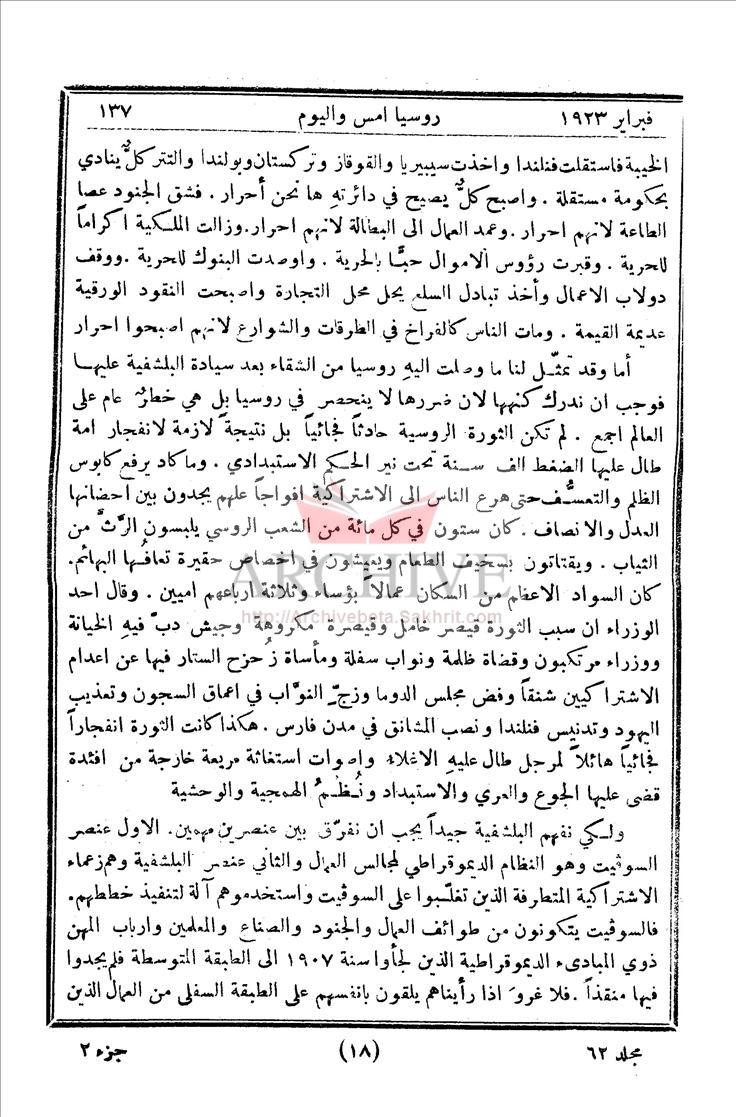 فبراير ١٩٢٣ روسيا امس واليوم ١٣٧
الخيبة فاستقلت فنلندا واخذت سيبيريا والقوقاز وتركستان وبولندا والتتر كلٌّ ينادي
بحكومة مستقلة . واصبح كلٌّ يصيح في دائرته ها نحن أحرار . فشق الجنود عصا
الطاعة لانهم احرار . وعمد العمال الى البطالة لانهم احرار . وزالت الملكية اكراماً
للحرية . وقبرت رؤوس الاموال حبًّا بالحرية . واوصدت البنوك للحرية . ووقف
دولاب الاعمال وأخذ تبادل السلع يحل محل التجارة واصبحت النقود الورقية
عديمة القيمة . ومات الناس كالفراخ في الطرقات والشوارع لانهم اصبحوا احرار
أما وقد تمثّل لنا ما وصلت اليهِ روسيا من الشقاء بعد سيادة البلشفية عليها
فوجب ان ندرك كنهها لان ضررها لا ينحصر في روسيا بل هي خطرٌ عام على
العالم اجمع . لم تكن الثورة الروسية حادثاً فجائياً بل نتيجة لازمة لانفجار امة
طال عليها الضغط الف سنة تحت نير الحكم الاستبدادي . وما كاد يرفع كابوس
الظلم والتعسُّف حتى هرع الناس الى الاشتراكية افواجاً علهم يجدون بين احضانها
العدل والانصاف . كان ستون في كل مائة من الشعب الروسي يلبسون الرَّثّ من
الثياب . ويقتاتون بسخيف الطعام ويعيشون في اخصاص حقيرة تعافها البهائم.
كان السواد الاعظم من السكان عمالاً بؤساء وثلاثة ارباعهم اميين . وقال احد
الوزراء ان سبب الثورة قيصر خامل وقيصرة مكروهة وجيش دبّ فيهِ الخيانة
ووزراء مرتكبون وقضاة ظلمة ونواب سفلة ومأساة زُحزح الستار فيها عن اعدام
الاشتراكيين شنقاً وفض مجلس الدوما وزجّ النوَّاب في اعماق السجون وتعذيب
اليهود وتدنيس فنلندا ونصب المشانق في مدن فارس . هكذا كانت الثورة انفجاراً
فجائياً هائلاً لمرجل طال عليهِ الاغلاء واصوات استغاثة مريعة خارجة من افئدة
قضى عليها الجوع والعري والاستبداد ونُظُمُ الهمجية والوحشية
ولكي نفهم البلشفية جيداً يجب ان نفرّق بين عنصرين مهمين. الاول عنصر
السوڤيت وهو النظام الديموقراطي لمجالس العمال والثاني عنصر البلشفية وهم زعماء
الاشتراكية المتطرفة الذين تغلّبوا على السوڤيت واستخدموهم آلة لتنفيذ خططهم.
فالسوڤيت يتكونون من طوائف العمال والجنود والصناع والمعلمين وارباب المهن
ذوي المبادىء الديموقراطية الذين لجأوا سنة ١٩٠٧ الى الطبقة المتوسطة فلم يجدوا
فيها منقذاً . فلا غروَ اذا رأيناهم يلقون بانفسهم على الطبقة السفلى من العمال الذين
مجلد ٦٢ (١٨) جزء ٢
ARCHIVE
http://Archivebeta.Sakhrit.com